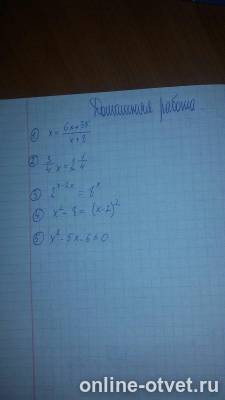 Домашняя работа.
① x = (6x+35)/(x+8)
② 3/4 x = 2 1/4
③ 2^(x-2x) = 8^x
④ x² - 8 = (x-2)²
⑤ x² - 5x - 6 ≤ 0
online-otvet.ru